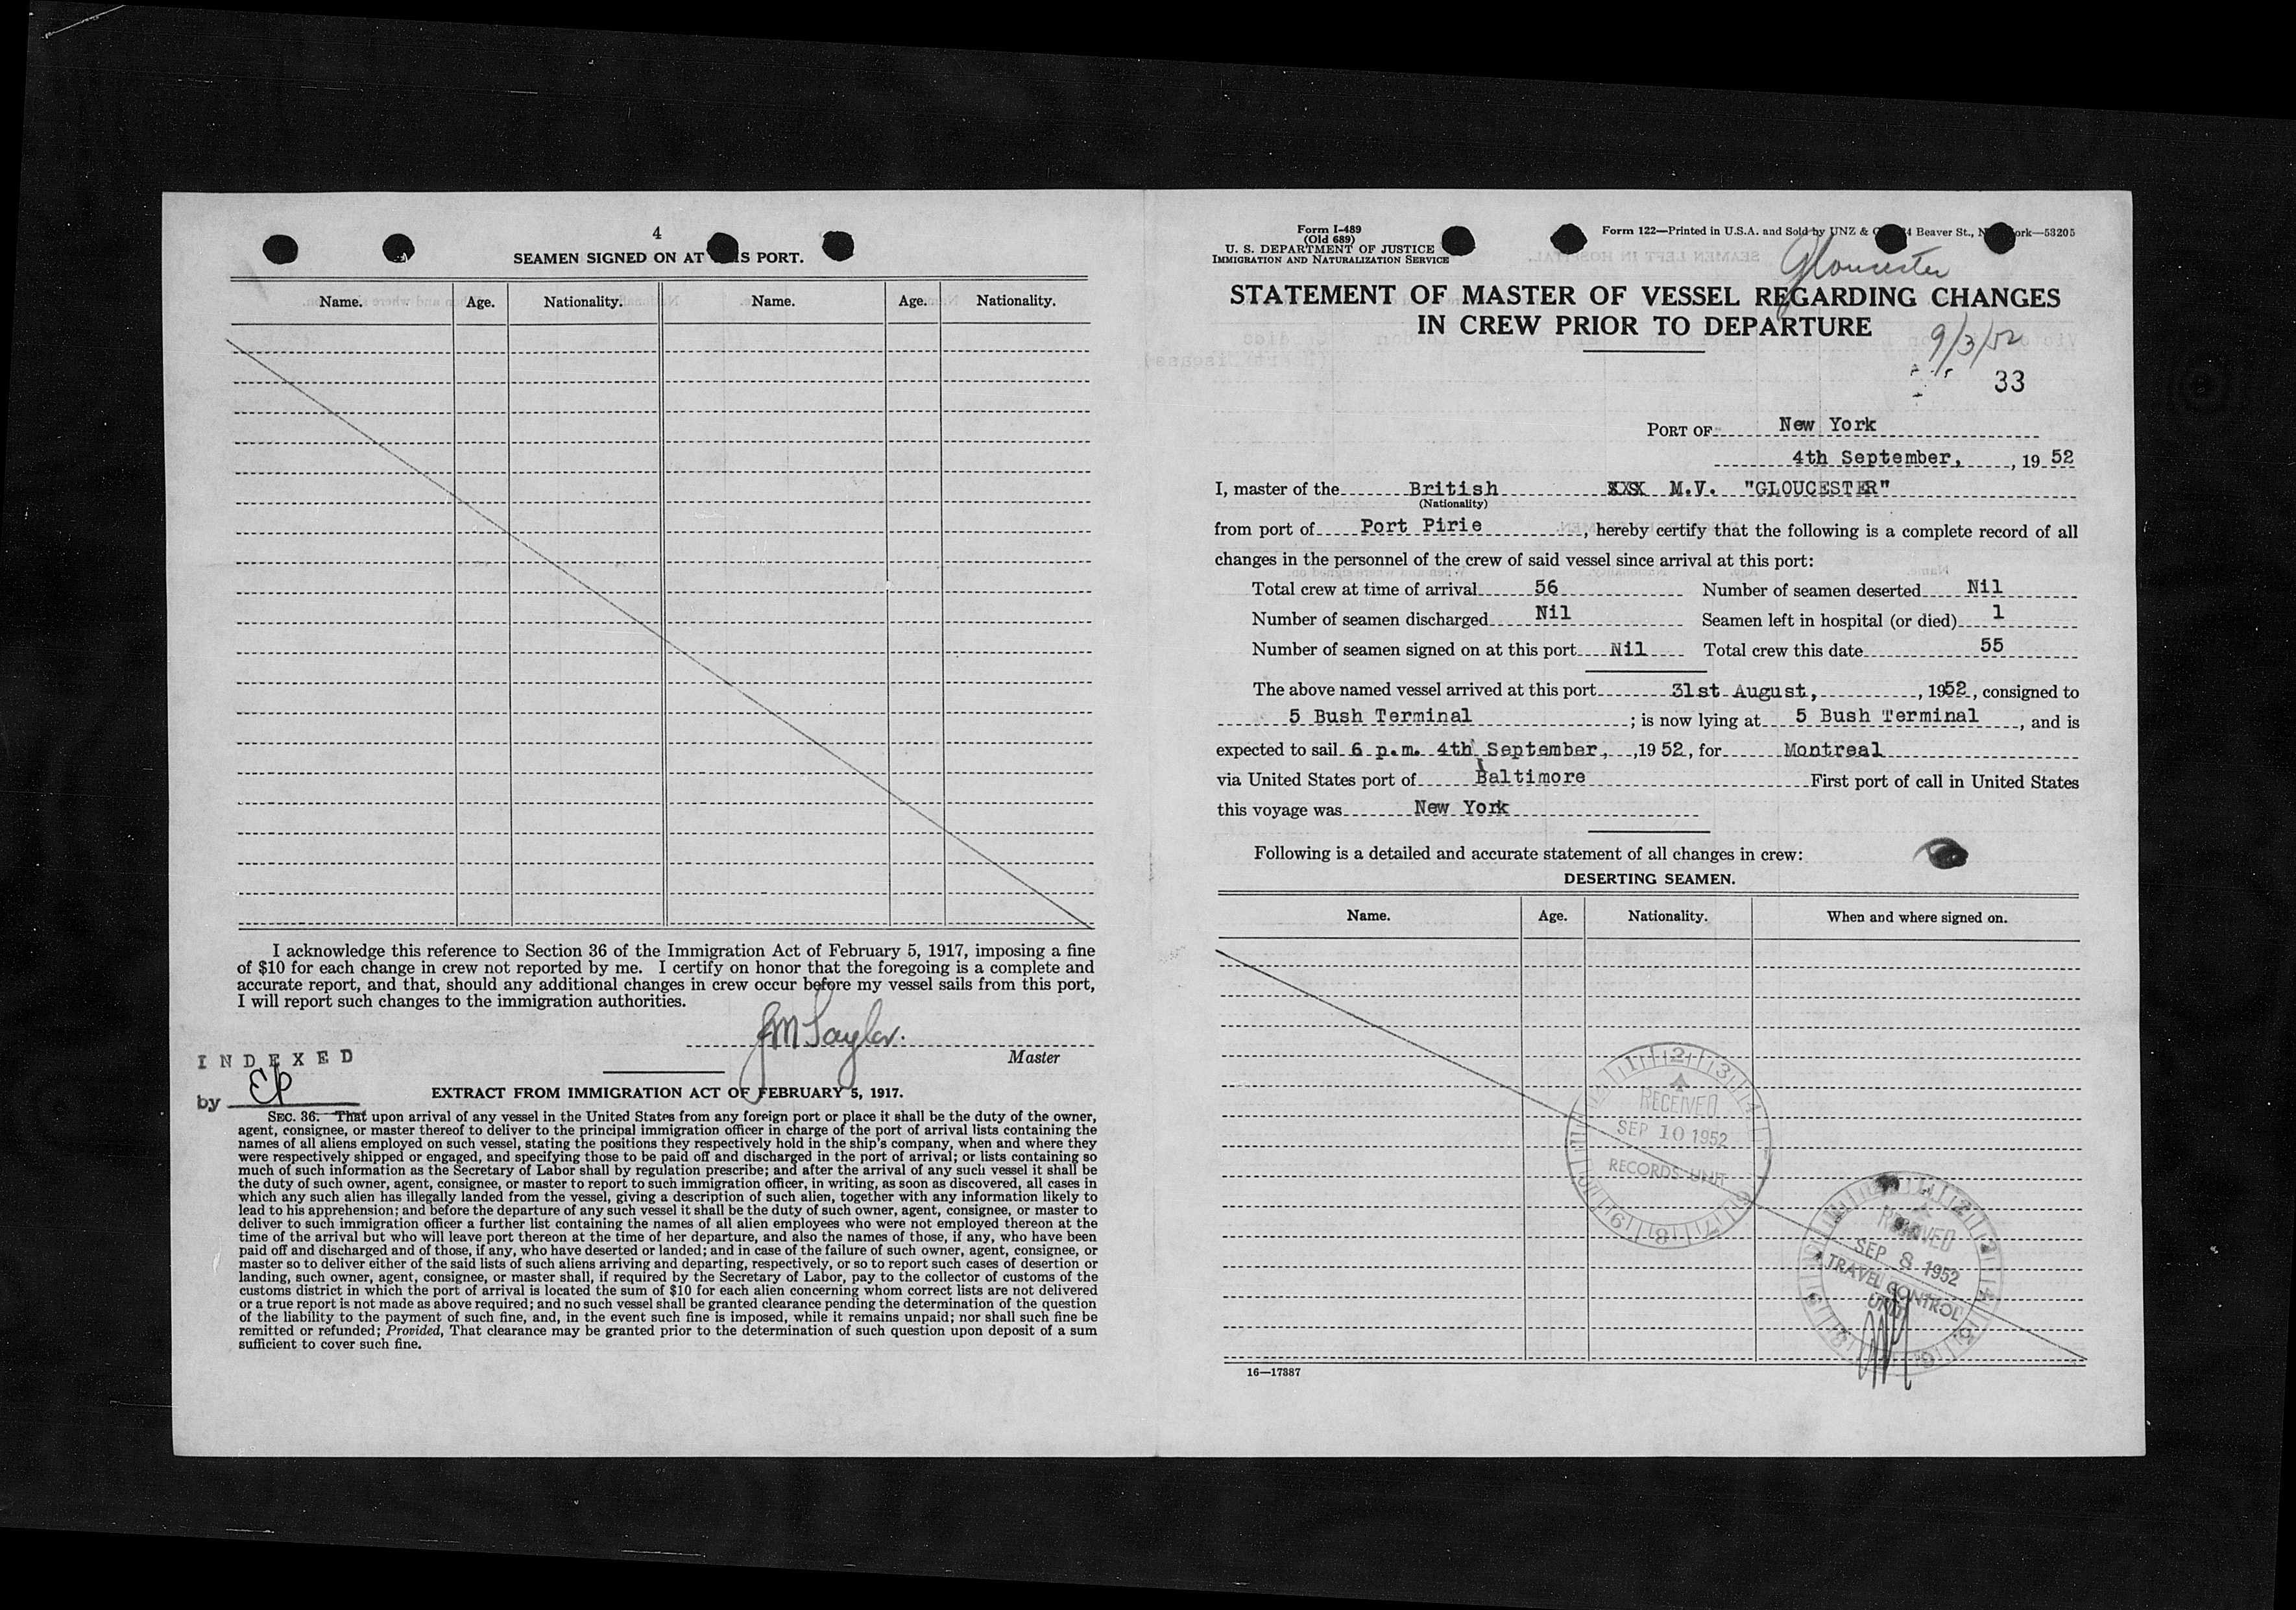 4
SEAMEN SIGNED ON AT THIS PORT.
Name. Age. Nationality. Name. Age. Nationality.
I acknowledge this reference to Section 36 of the Immigration Act of February 5, 1917, imposing a fine
of $10 for each change in crew not reported by me. I certify on honor that the foregoing is a complete and
accurate report, and that, should any additional changes in crew occur before my vessel sails from this port,
I will report such changes to the immigration authorities.
JM Taylor.
Master
INDEXED
by EP
EXTRACT FROM IMMIGRATION ACT OF FEBRUARY 5, 1917.
SEC. 36. That upon arrival of any vessel in the United States from any foreign port or place it shall be the duty of the owner,
agent, consignee, or master thereof to deliver to the principal immigration officer in charge of the port of arrival lists containing the
names of all aliens employed on such vessel, stating the positions they respectively hold in the ship's company, when and where they
were respectively shipped or engaged, and specifying those to be paid off and discharged in the port of arrival; or lists containing so
much of such information as the Secretary of Labor shall by regulation prescribe; and after the arrival of any such vessel it shall be
the duty of such owner, agent, consignee, or master to report to such immigration officer, in writing, as soon as discovered, all cases in
which any such alien has illegally landed from the vessel, giving a description of such alien, together with any information likely to
lead to his apprehension; and before the departure of any such vessel it shall be the duty of such owner, agent, consignee, or master to
deliver to such immigration officer a further list containing the names of all alien employees who were not employed thereon at the
time of the arrival but who will leave port thereon at the time of her departure, and also the names of those, if any, who have been
paid off and discharged and of those, if any, who have deserted or landed; and in case of the failure of such owner, agent, consignee, or
master so to deliver either of the said lists of such aliens arriving and departing, respectively, or so to report such cases of desertion or
landing, such owner, agent, consignee, or master shall, if required by the Secretary of Labor, pay to the collector of customs of the
customs district in which the port of arrival is located the sum of $10 for each alien concerning whom correct lists are not delivered
or a true report is not made as above required; and no such vessel shall be granted clearance pending the determination of the question
of the liability to the payment of such fine, and, in the event such fine is imposed, while it remains unpaid; nor shall such fine be
remitted or refunded; Provided, That clearance may be granted prior to the determination of such question upon deposit of a sum
sufficient to cover such fine.
Form I-489
(Old 689)
U. S. DEPARTMENT OF JUSTICE
IMMIGRATION AND NATURALIZATION SERVICE
Form 122—Printed in U.S.A. and Sold by UNZ & Beaver St., New York—53205
Gloucester
STATEMENT OF MASTER OF VESSEL REGARDING CHANGES
IN CREW PRIOR TO DEPARTURE
9/3/52
33
PORT OF New York
4th September, , 19 52
I, master of the British XXX M.V. "GLOUCESTER"
(Nationality)
from port of Port Pirie , hereby certify that the following is a complete record of all
changes in the personnel of the crew of said vessel since arrival at this port:
Total crew at time of arrival 56 Number of seamen deserted Nil
Number of seamen discharged Nil Seamen left in hospital (or died) 1
Number of seamen signed on at this port Nil Total crew this date 55
The above named vessel arrived at this port 31st August, , 1952, consigned to
5 Bush Terminal ; is now lying at 5 Bush Terminal , and is
expected to sail 6 p.m. 4th September, ,19 52, for Montreal
via United States port of Baltimore First port of call in United States
this voyage was New York
Following is a detailed and accurate statement of all changes in crew:
DESERTING SEAMEN.
Name. Age. Nationality. When and where signed on.
RECEIVED
SEP 10 1952
RECORDS UNIT
RECEIVED
SEP 8 1952
TRAVEL CONTROL
UNIT
16—17887